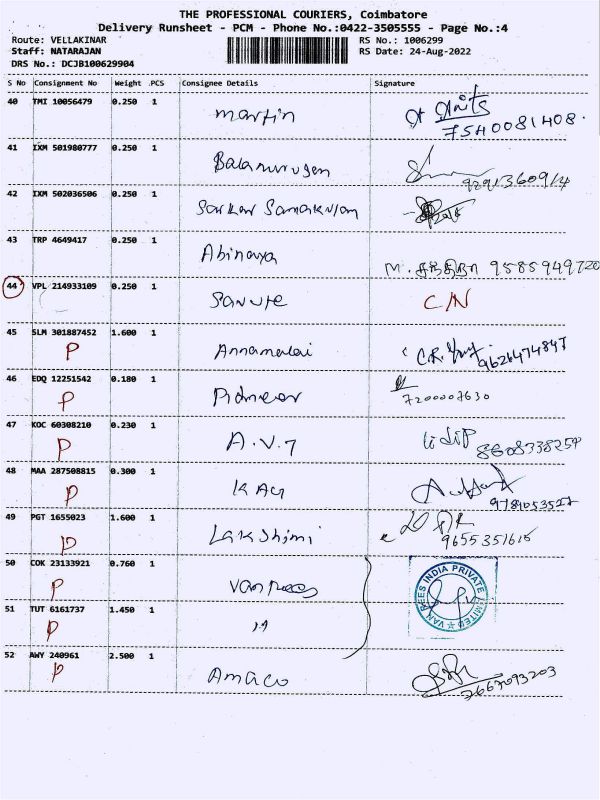 THE PROFESSIONAL COURIERS, Coimbatore
Delivery Runsheet - PCM - Phone No.:0422-3505555 - Page No.:4
Route: VELLAKINAR RS No.: 1006299
Staff: NATARAJAN RS Date: 24-Aug-2022
DRS No.: DCJB100629904
S No Consignment No Weight .PCS Consignee Details Signature
40 TMI 10056479 0.250 1 martin
7540081408.
41 IXM 501980777 0.250 1 Balamurugan
9291360914
42 IXM 502036506 0.250 1
43 TRP 4649417 0.250 1 Abinaya 9585949720
44 VPL 214933109 0.250 1 C/N
45 SLM 301887452 1.600 1 Annamalai 9626474847
P
46 EDQ 12251542 0.180 1
P 7200007630
47 KOC 60308210 0.230 1 A.V.7 8608338254
P
48 MAA 287508815 0.300 1
P 9789053527
49 PGT 1655023 1.600 1 Lakshimi
P 9655351615
50 COK 23133921 0.760 1 Van Rees
P
VAN REES INDIA PRIVATE LIMITED
51 TUT 6161737 1.450 1 "
P
52 AWY 240961 2.500 1 Amaco
P 7667093203